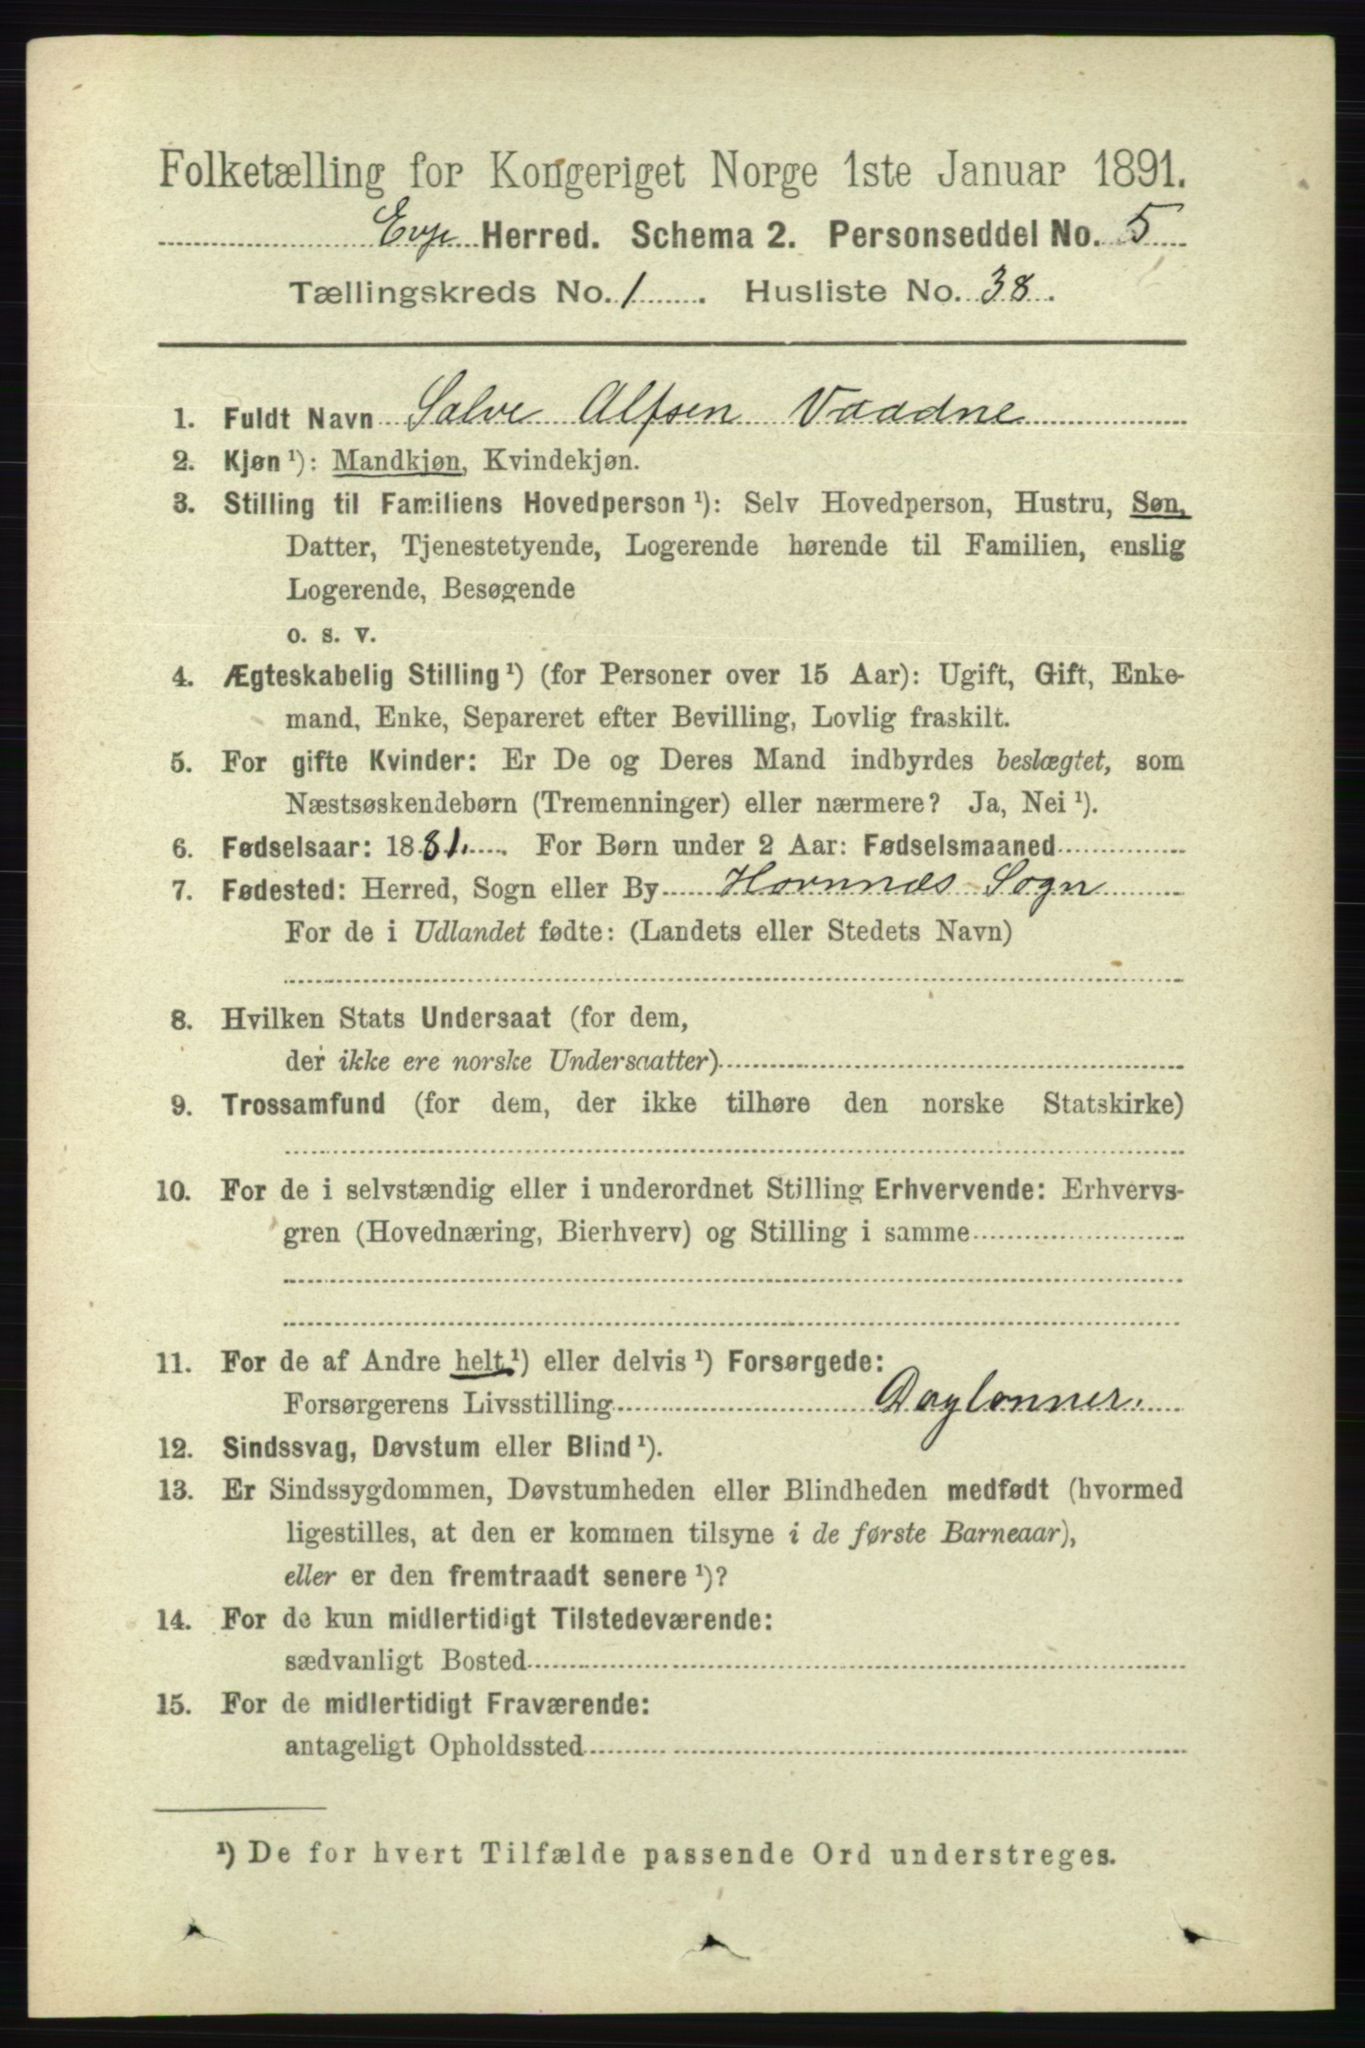 Folketælling for Kongeriget Norge 1ste Januar 1891.
Evje Herred. Schema 2. Personseddel No. 5
Tællingskreds No. 1. Husliste No. 38.
1. Fuldt Navn Salve Alfsen Vaadne
2. Kjøn ¹): Mandkjøn, Kvindekjøn.
3. Stilling til Familiens Hovedperson ¹): Selv Hovedperson, Hustru, Søn,
Datter, Tjenestetyende, Logerende hørende til Familien, enslig
Logerende, Besøgende
o. s. v.
4. Ægteskabelig Stilling ¹) (for Personer over 15 Aar): Ugift, Gift, Enke-
mand, Enke, Separeret efter Bevilling, Lovlig fraskilt.
5. For gifte Kvinder: Er De og Deres Mand indbyrdes beslægtet, som
Næstsøskendebørn (Tremenninger) eller nærmere? Ja, Nei ¹).
6. Fødselsaar: 1881. For Børn under 2 Aar: Fødselsmaaned
7. Fødested: Herred, Sogn eller By Hornnæs Sogn
For de i Udlandet fødte: (Landets eller Stedets Navn)
8. Hvilken Stats Undersaat (for dem,
der ikke ere norske Undersaatter)
9. Trossamfund (for dem, der ikke tilhøre den norske Statskirke)
10. For de i selvstændig eller i underordnet Stilling Erhvervende: Erhvervs-
gren (Hovednæring, Bierhverv) og Stilling i samme
11. For de af Andre helt ¹) eller delvis ¹) Forsørgede:
Forsørgerens Livsstilling Daglønner.
12. Sindssvag, Døvstum eller Blind ¹).
13. Er Sindssygdommen, Døvstumheden eller Blindheden medfødt (hvormed
ligestilles, at den er kommen tilsyne i de første Barneaar),
eller er den fremtraadt senere ¹)?
14. For de kun midlertidigt Tilstedeværende:
sædvanligt Bosted
15. For de midlertidigt Fraværende:
antageligt Opholdssted
¹) De for hvert Tilfælde passende Ord understreges.